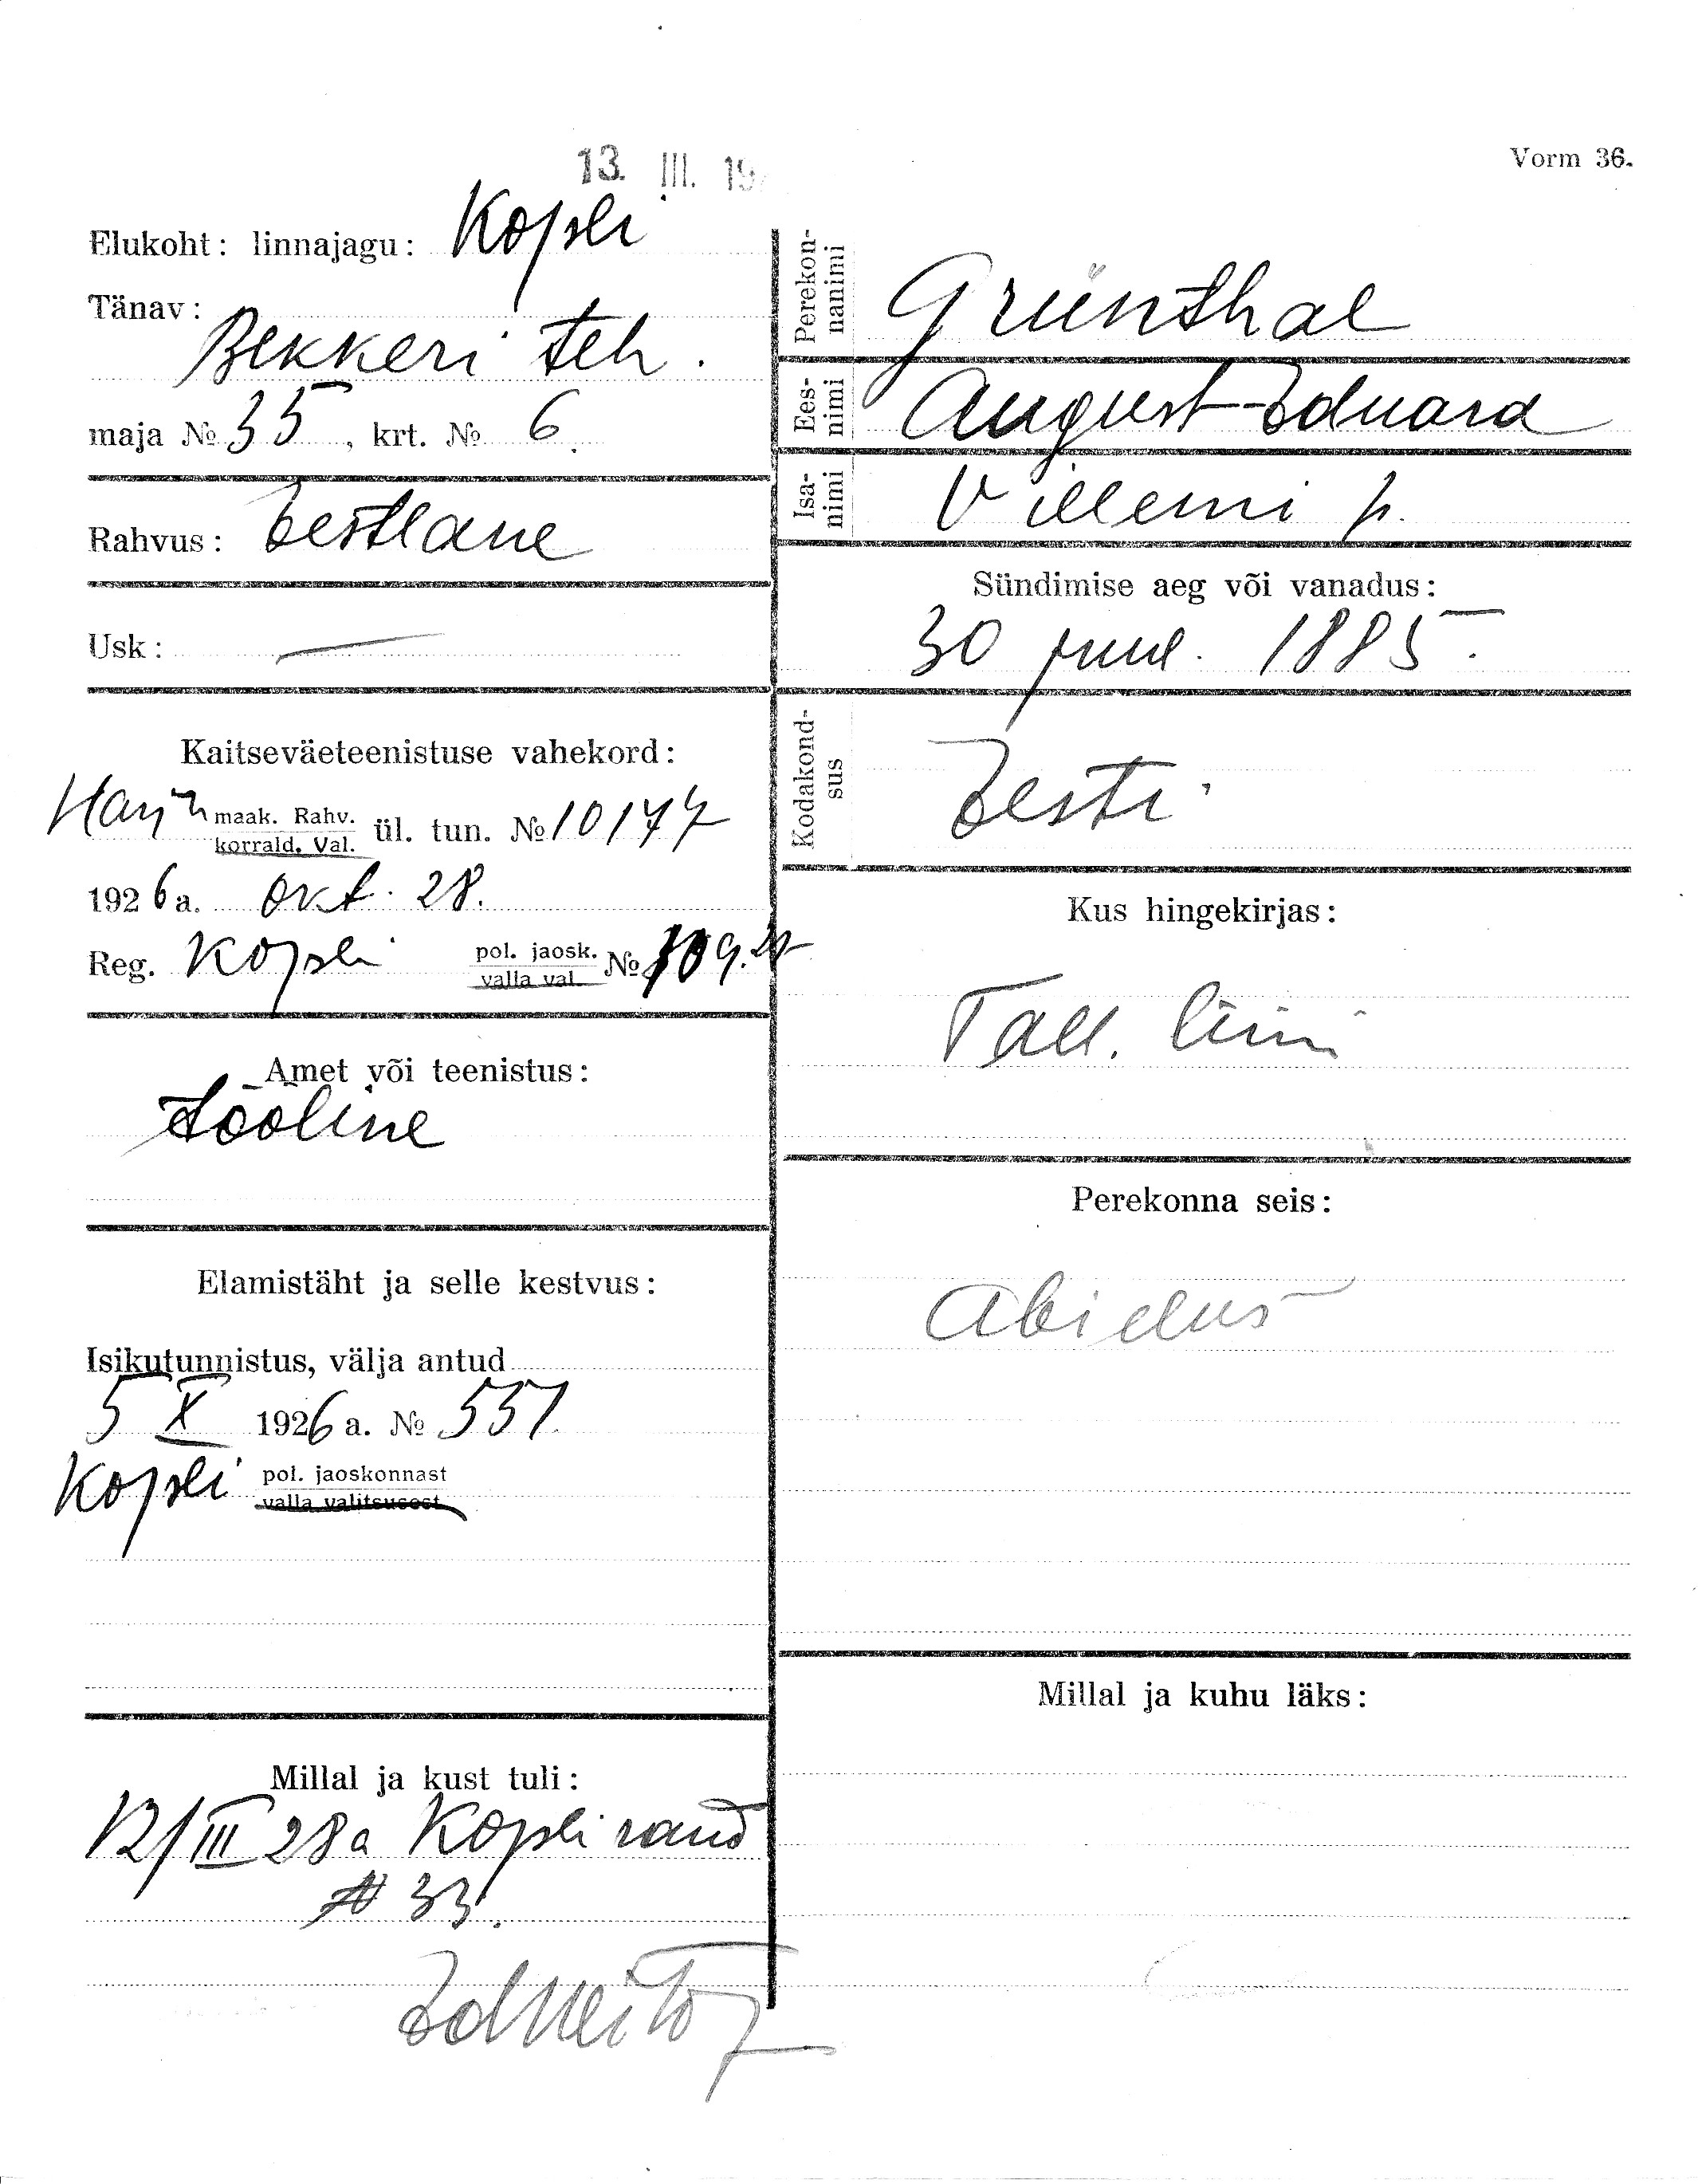 13. III. 19
Vorm 36.
Elukoht: linnajagu: Kopli
Tänav:
Bekkeri teh.
maja № 35, krt. № 6.
Rahvus: Eestlane
Usk: —
Kaitseväeteenistuse vahekord:
Harju maak. Rahv.
korrald. Val. ül. tun. № 10147
1926 a. okt. 28.
Reg. Kopli pol. jaosk.
valla val. №
Amet või teenistus:
tööline
Elamistäht ja selle kestvus:
Isikutunnistus, välja antud
5 X 1926 a. № 551.
Kopli pol. jaoskonnast
valla valitsusest
Millal ja kust tuli:
12/III 28 a Kopli rand
№ 33.
Perekon-
nanimi Grünthal
Ees-
nimi August-Eduard
Isa-
nimi Villemi p.
Sündimise aeg või vanadus:
30 juul. 1885.
Kodakond-
sus Eesti
Kus hingekirjas:
Tall. linn
Perekonna seis:
abielus
Millal ja kuhu läks: